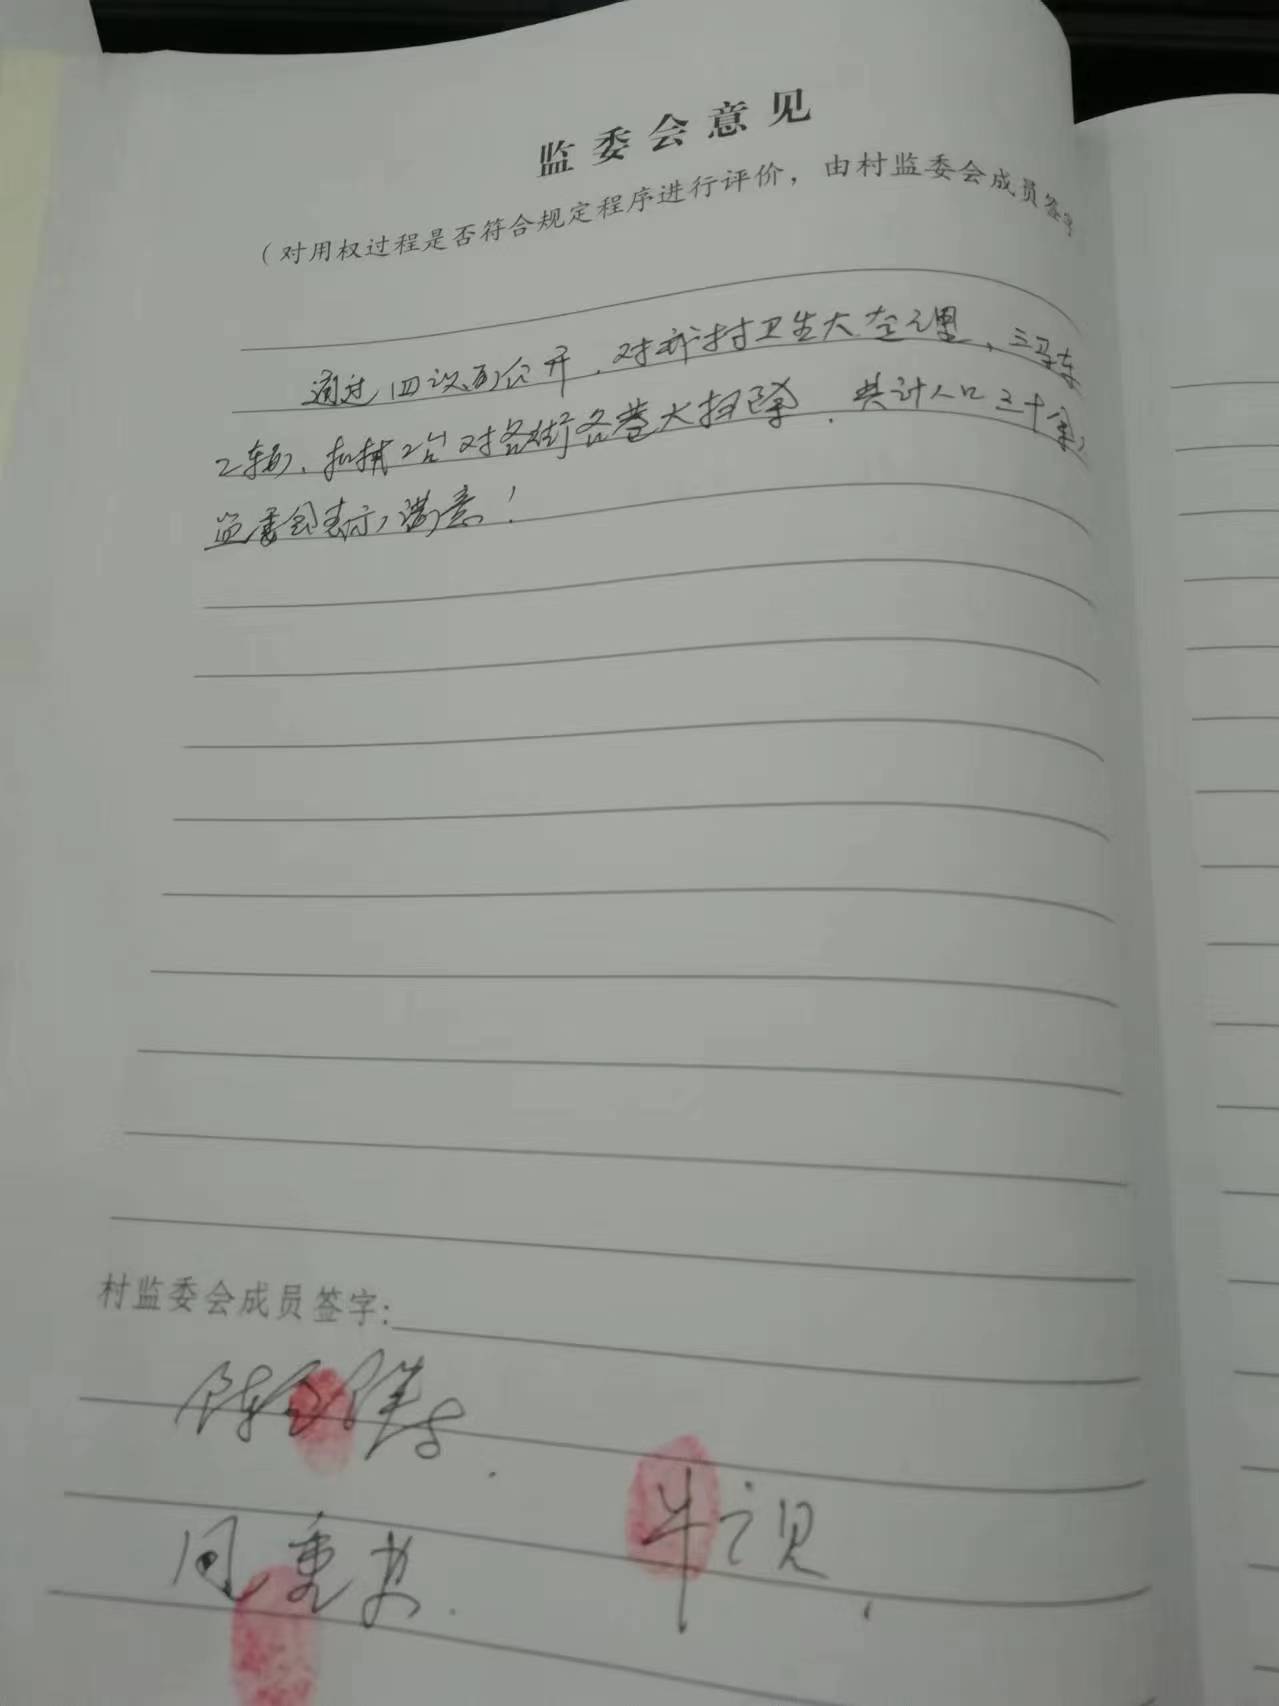 监委会意见
（对用权过程是否符合规定程序进行评价，由村监委会成员签字
通过四议两公开，对我村卫生大处理、三马车
2辆、扣捕2台对各街各巷大扫除，共计人口三十余，
监委会表示满意！
村监委会成员签字：